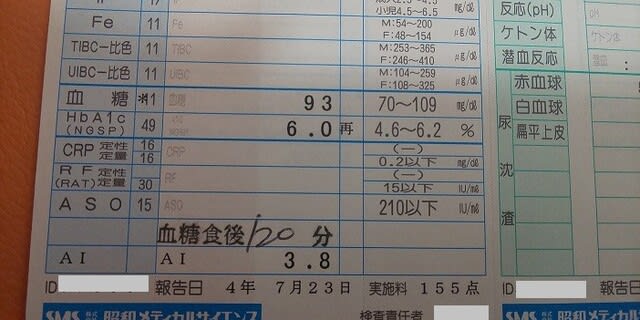 小児4.5~6.5 ㎎/㎗
Fe 11 Fe M:54~200 F:48~154 ㎍/㎗
TIBC-比色 11 TIBC M:253~365 F:246~410 ㎍/㎗
UIBC-比色 11 UIBC M:104~259 F:108~325 ㎍/㎗
血糖 ※11 血糖 93 70~109 ㎎/㎗
HbA1c (NGSP) 49 6.0 再 4.6~6.2 %
CRP 定性 定量 16 16 CRP (-) 0.2以下 ㎎/㎗
RF (RAT) 定性 定量 30 RF (-) 15以下 IU/㎖
ASO 15 ASO 210以下 IU/㎖
血糖食後 120 分
AI AI 3.8
ID 報告日 4年 7月23日 実施料 155点
SMS 株式 昭和メディカルサイエンス 検査責任者
反応(pH) pH
ケトン体
潜血反応
尿沈渣
赤血球
白血球
扁平上皮
ID 報告日
SMS 株式 昭和メディカルサイエンス